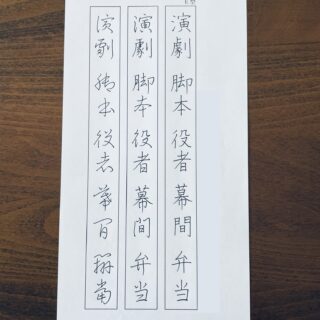 演劇 脚本 役者 幕間 弁当
演劇 脚本 役者 幕間 弁当
演劇 脚本 役者 幕間 辨當